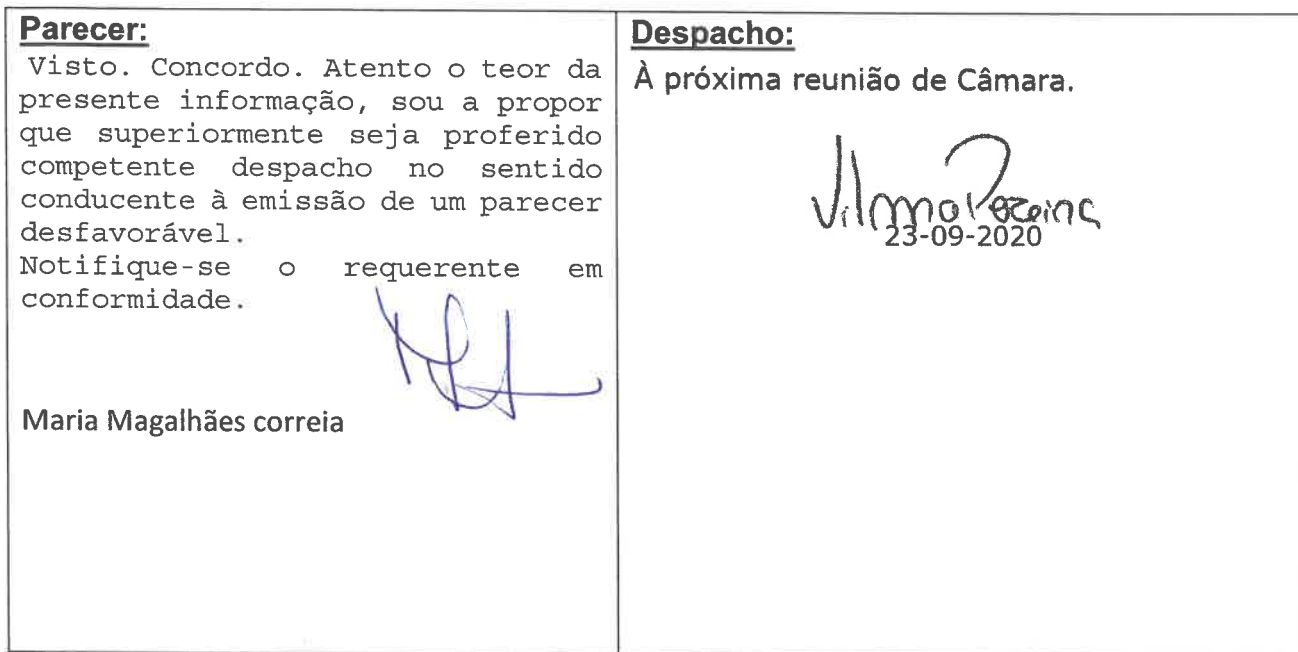 Parecer:
Visto. Concordo. Atento o teor da
presente informação, sou a propor
que superiormente seja proferido
competente despacho no sentido
conducente à emissão de um parecer
desfavorável.
Notifique-se o requerente em
conformidade.
Maria Magalhães correia
Despacho:
À próxima reunião de Câmara.
Vilma Pereira
23-09-2020